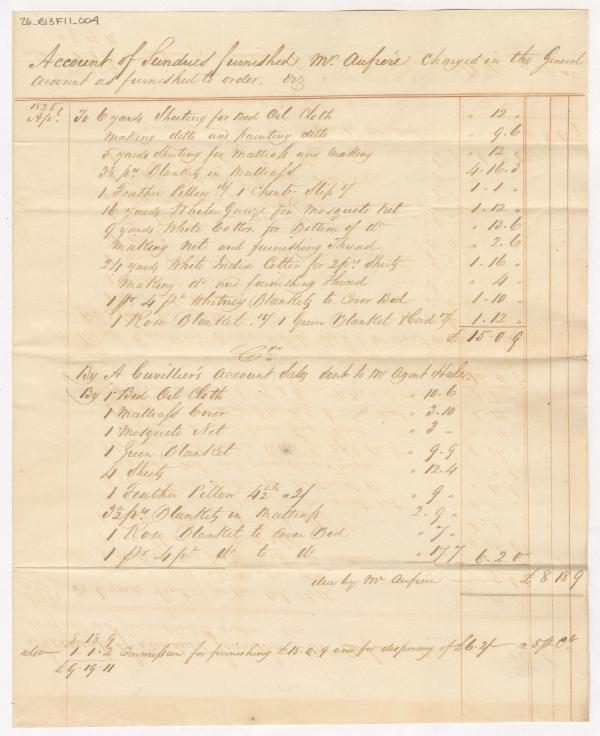 26_B13F11_004
Account of Sundries furnished Mr. Aufrere Charged in the General
account as furnished to order. viz
1826
Apl. To 6 yards Sheeting for Bed Oil Cloth " 12 "
making ditto and painting ditto " 9.6
5 yards Sheeting for Mattrass and Making " 12 "
3½ prs Blankets in Mattrass 4.16.3
1 Feather Pillow 1 Slip 1.1 "
16 yards White Gauze for Mosqueto Net 1.12 "
9 yards White Cotton for Bottom of do " 13.6
Making Net and furnishing Thread " 2.6
24 yards White India Cotton for 2 prs Sheets 1.16 "
Making do and furnishing thread " 4 "
1 pr 4 pt Whitney Blankets to Cover Bed 1.10 "
1 Rose Blanket 1 Green Blanket 1.12 "
£ 15.0.9
Cr.
By A Cuvillier's Account Sales sent to Mr Agent Hale.
By 1 Bed Oil Cloth " 10.6
1 Mattrass Cover " 3.10
1 Mosqueto Net " 3 "
1 Green Blanket " 9.9
4 Sheets " 12.4
1 Feather Pillow 4½ lb a 2/ " 9 "
3½ prs Blankets in Mattrass 2.9 "
1 Rose Blanket to Cover Bed " 7 "
1 pr 4 pt do to do " 17.7 6.2.0
due by Mr Aufrere £ 8 18 9
8.18.9
also 1.1.2 Commission for furnishing £15.0.9 and for disposing of £6.2/ a 5 p Ct
£9.19.11